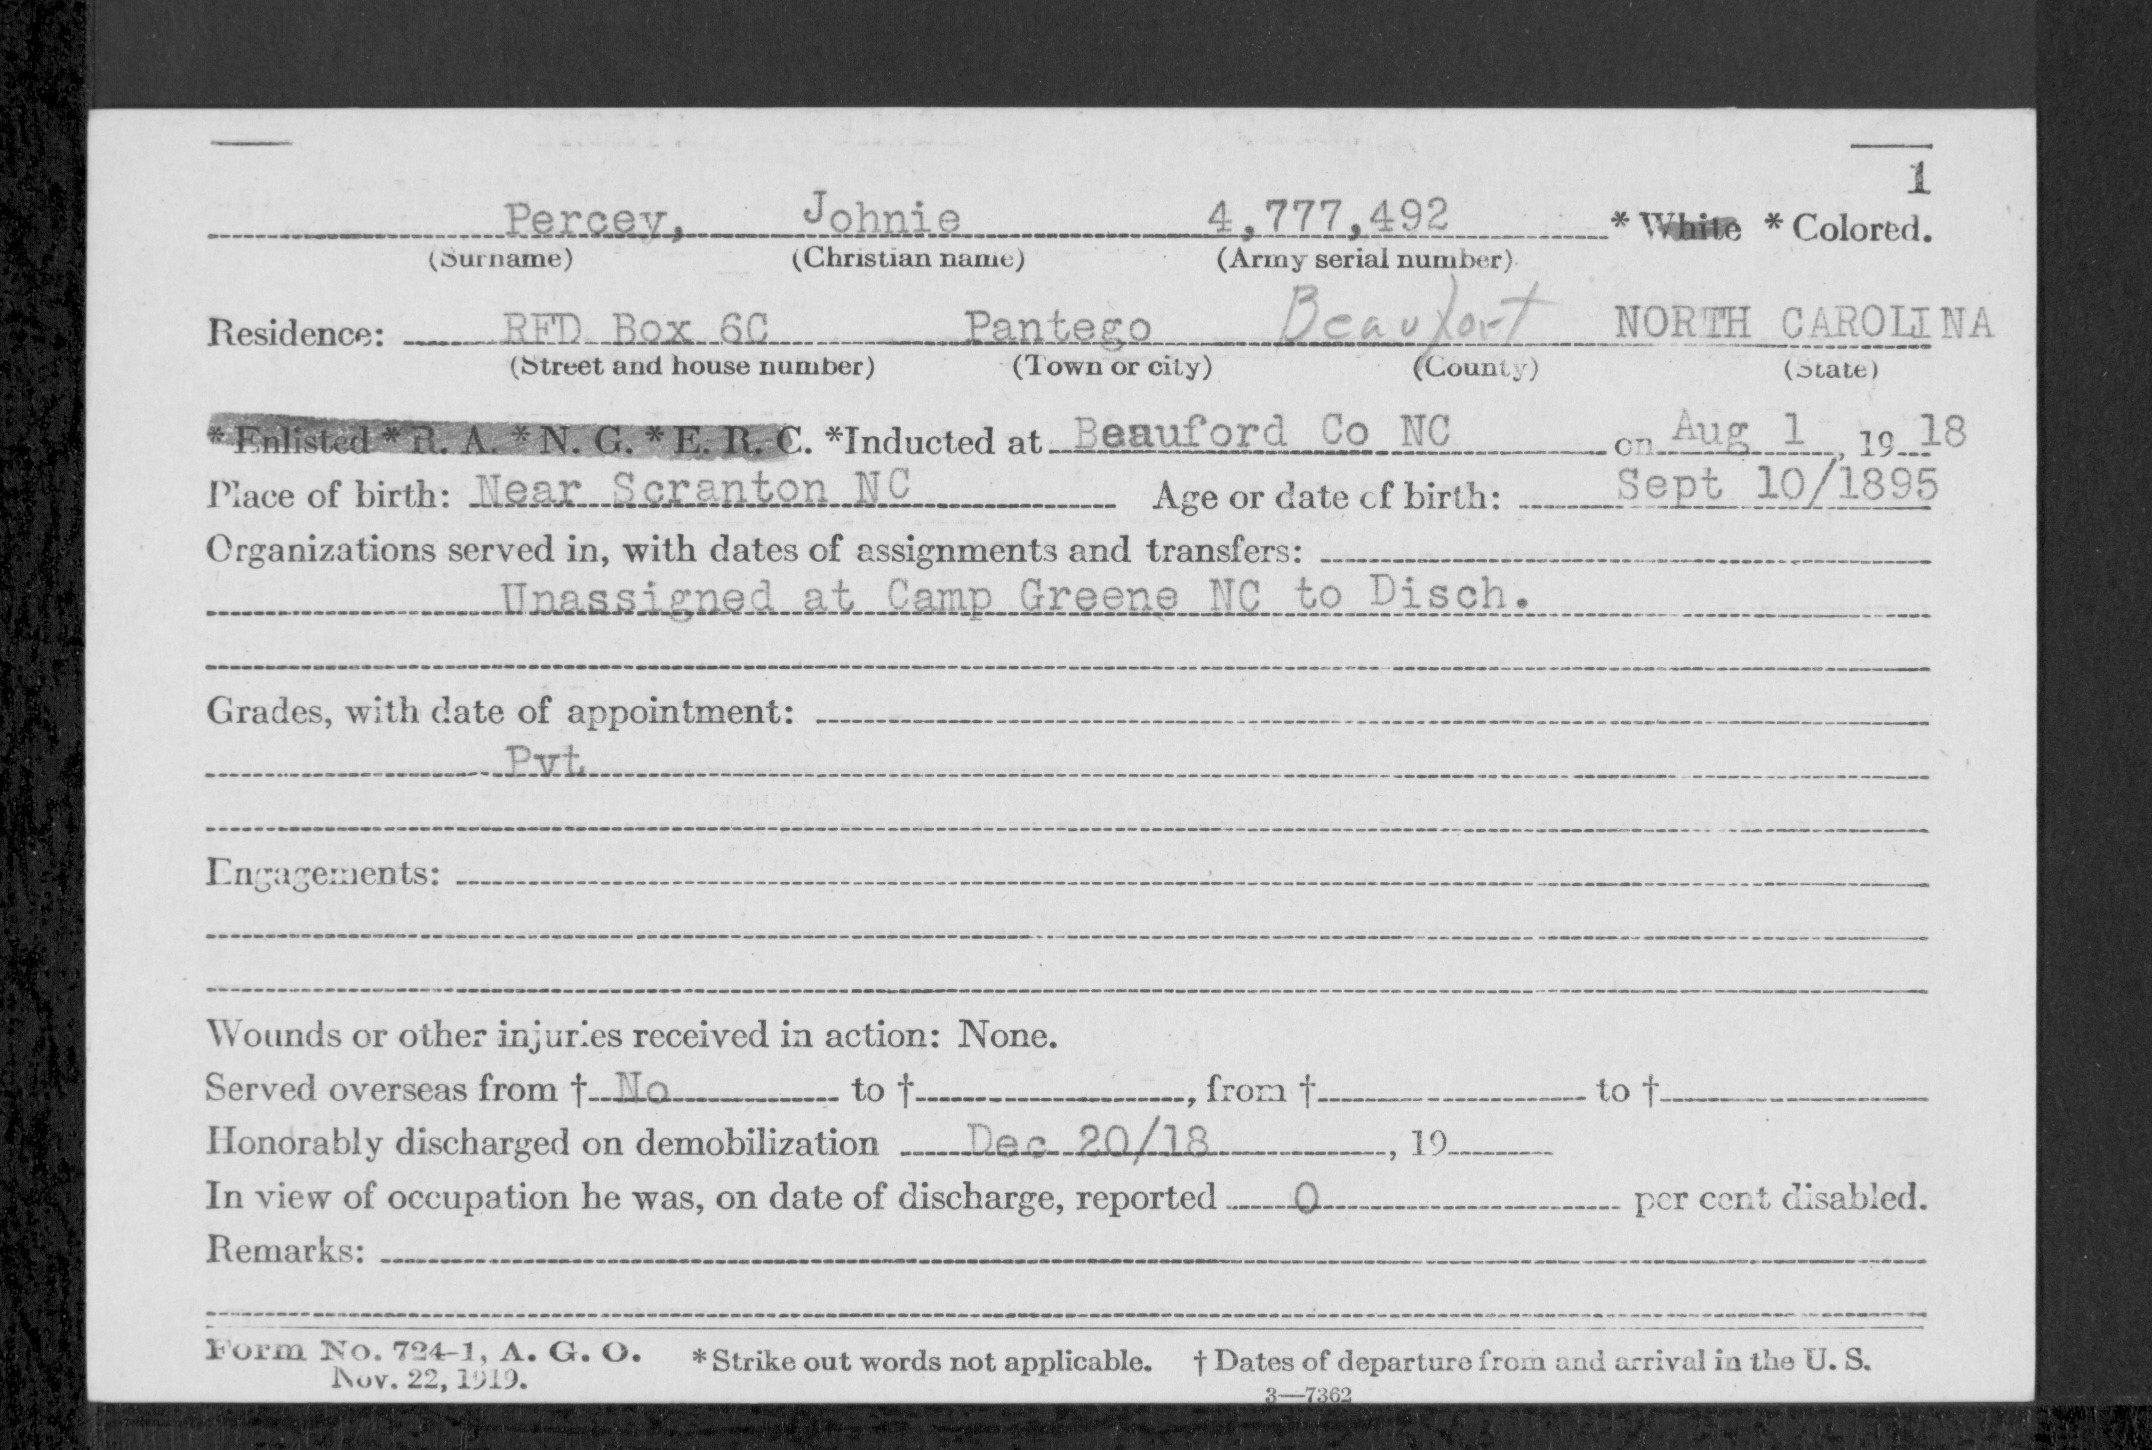 1
Percey, Johnie 4,777,492 * White * Colored.
(Surname) (Christian name) (Army serial number)
Residence: RFD Box 6C Pantego Beaufort NORTH CAROLINA
(Street and house number) (Town or city) (County) (State)
* Enlisted * R. A. * N. G. * E. R. C. *Inducted at Beauford Co NC on Aug 1, 19 18
Place of birth: Near Scranton NC Age or date of birth: Sept 10/1895
Organizations served in, with dates of assignments and transfers:
Unassigned at Camp Greene NC to Disch.
Grades, with date of appointment:
Pvt
Engagements:
Wounds or other injuries received in action: None.
Served overseas from † No to †, from † to †
Honorably discharged on demobilization Dec 20/18, 19
In view of occupation he was, on date of discharge, reported 0 per cent disabled.
Remarks:
Form No. 724-1, A. G. O. * Strike out words not applicable. † Dates of departure from and arrival in the U. S.
Nov. 22, 1919.
3—7362